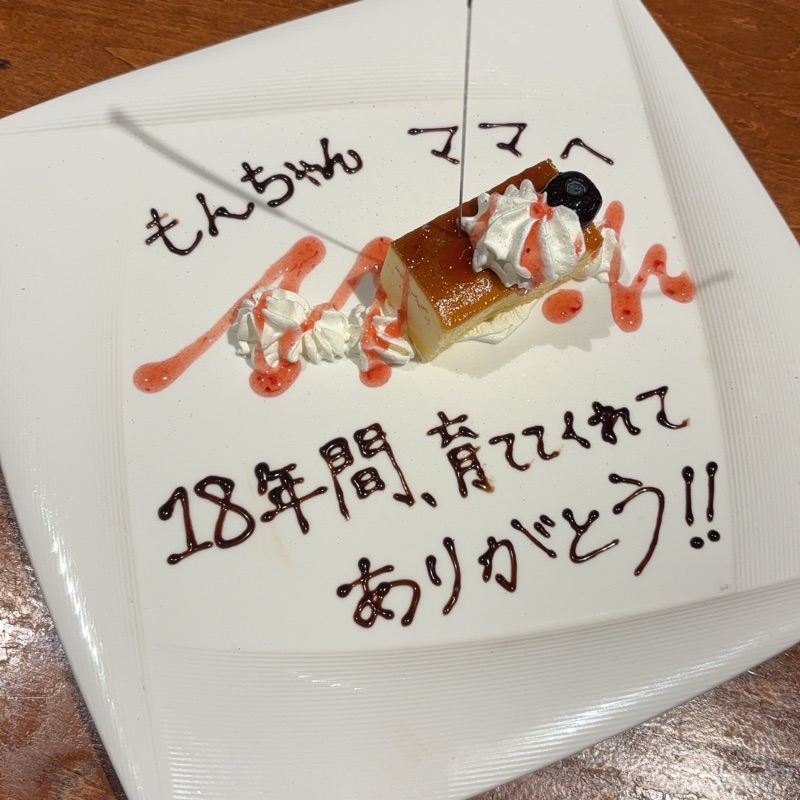 もんちゃん ママへ
18年間、育ててくれて
ありがとう!!